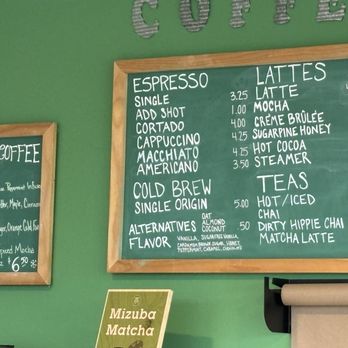 COFFEE
COFFEE
$6.50
ESPRESSO
SINGLE 3.25
ADD SHOT 1.00
CORTADO 4.00
CAPPUCCINO 4.25
MACCHIATO 4.25
AMERICANO 3.50
COLD BREW
SINGLE ORIGIN 5.00
ALTERNATIVES OAT ALMOND COCONUT .50
FLAVOR VANILLA, SUGARFREE VANILLA,
CARDAMOM BROWN SUGAR, HONEY
PEPPERMINT, CARAMEL, CHOCOLATE
LATTES
LATTE
MOCHA
CRÉME BRÛLÉE
SUGARPINE HONEY
HOT COCOA
STEAMER
TEAS
HOT/ICED
CHAI
DIRTY HIPPIE CHAI
MATCHA LATTE
Mizuba
Matcha